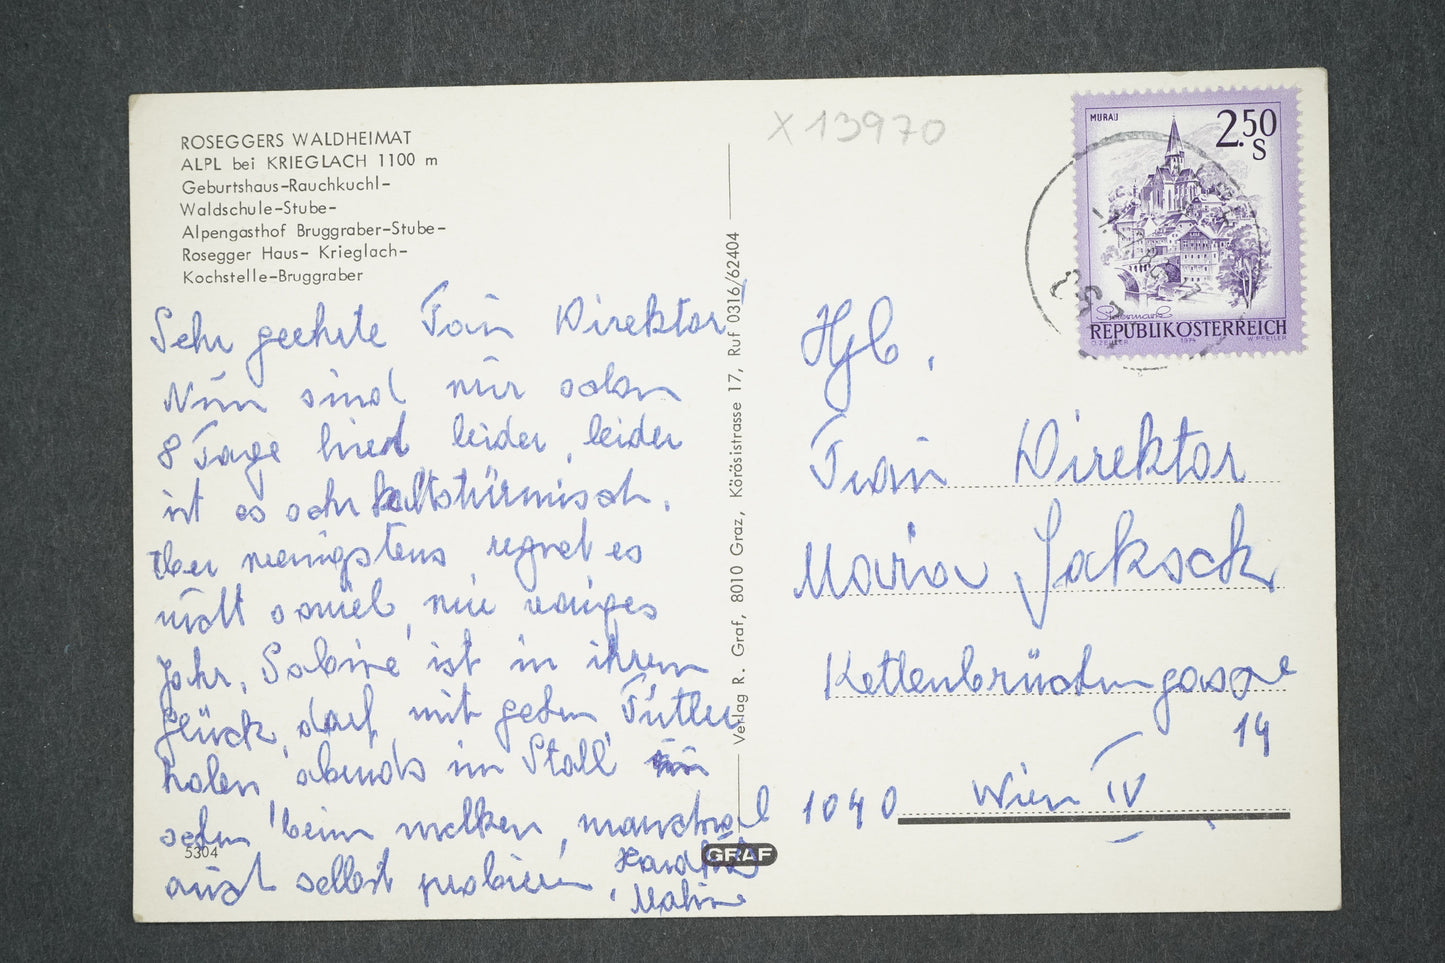 ROSEGGERS WALDHEIMAT
ALPL bei KRIEGLACH 1100 m
Geburtshaus-Rauchkuchl-
Waldschule-Stube-
Alpengasthof Bruggraber-Stube-
Rosegger Haus- Krieglach-
Kochstelle-Bruggraber
Sehr geehrte Frau Direktor!
Nun sind wir schon
8 Tage hier leider, leider
ist es sehr kaltstürmisch.
Aber wenigstens regnet es
nicht soviel, wie voriges
Jahr. Sabine ist in ihrem
Glück, darf mit gehen Futter
holen, abends im Stall
sehn beim melken, manchmal
auch selbst probieren.
5304
GRAF
Verlag R. Graf, 8010 Graz, Körösistrasse 17, Ruf 0316/62404
X 13970
MURAU
2.50
S
Steiermark
REPUBLIK ÖSTERREICH
O.ZEILLER 1974 W.PFEILER
Frau Direktor
Maria Jaksch
Kettenbrückengasse
14
1040 Wien IV